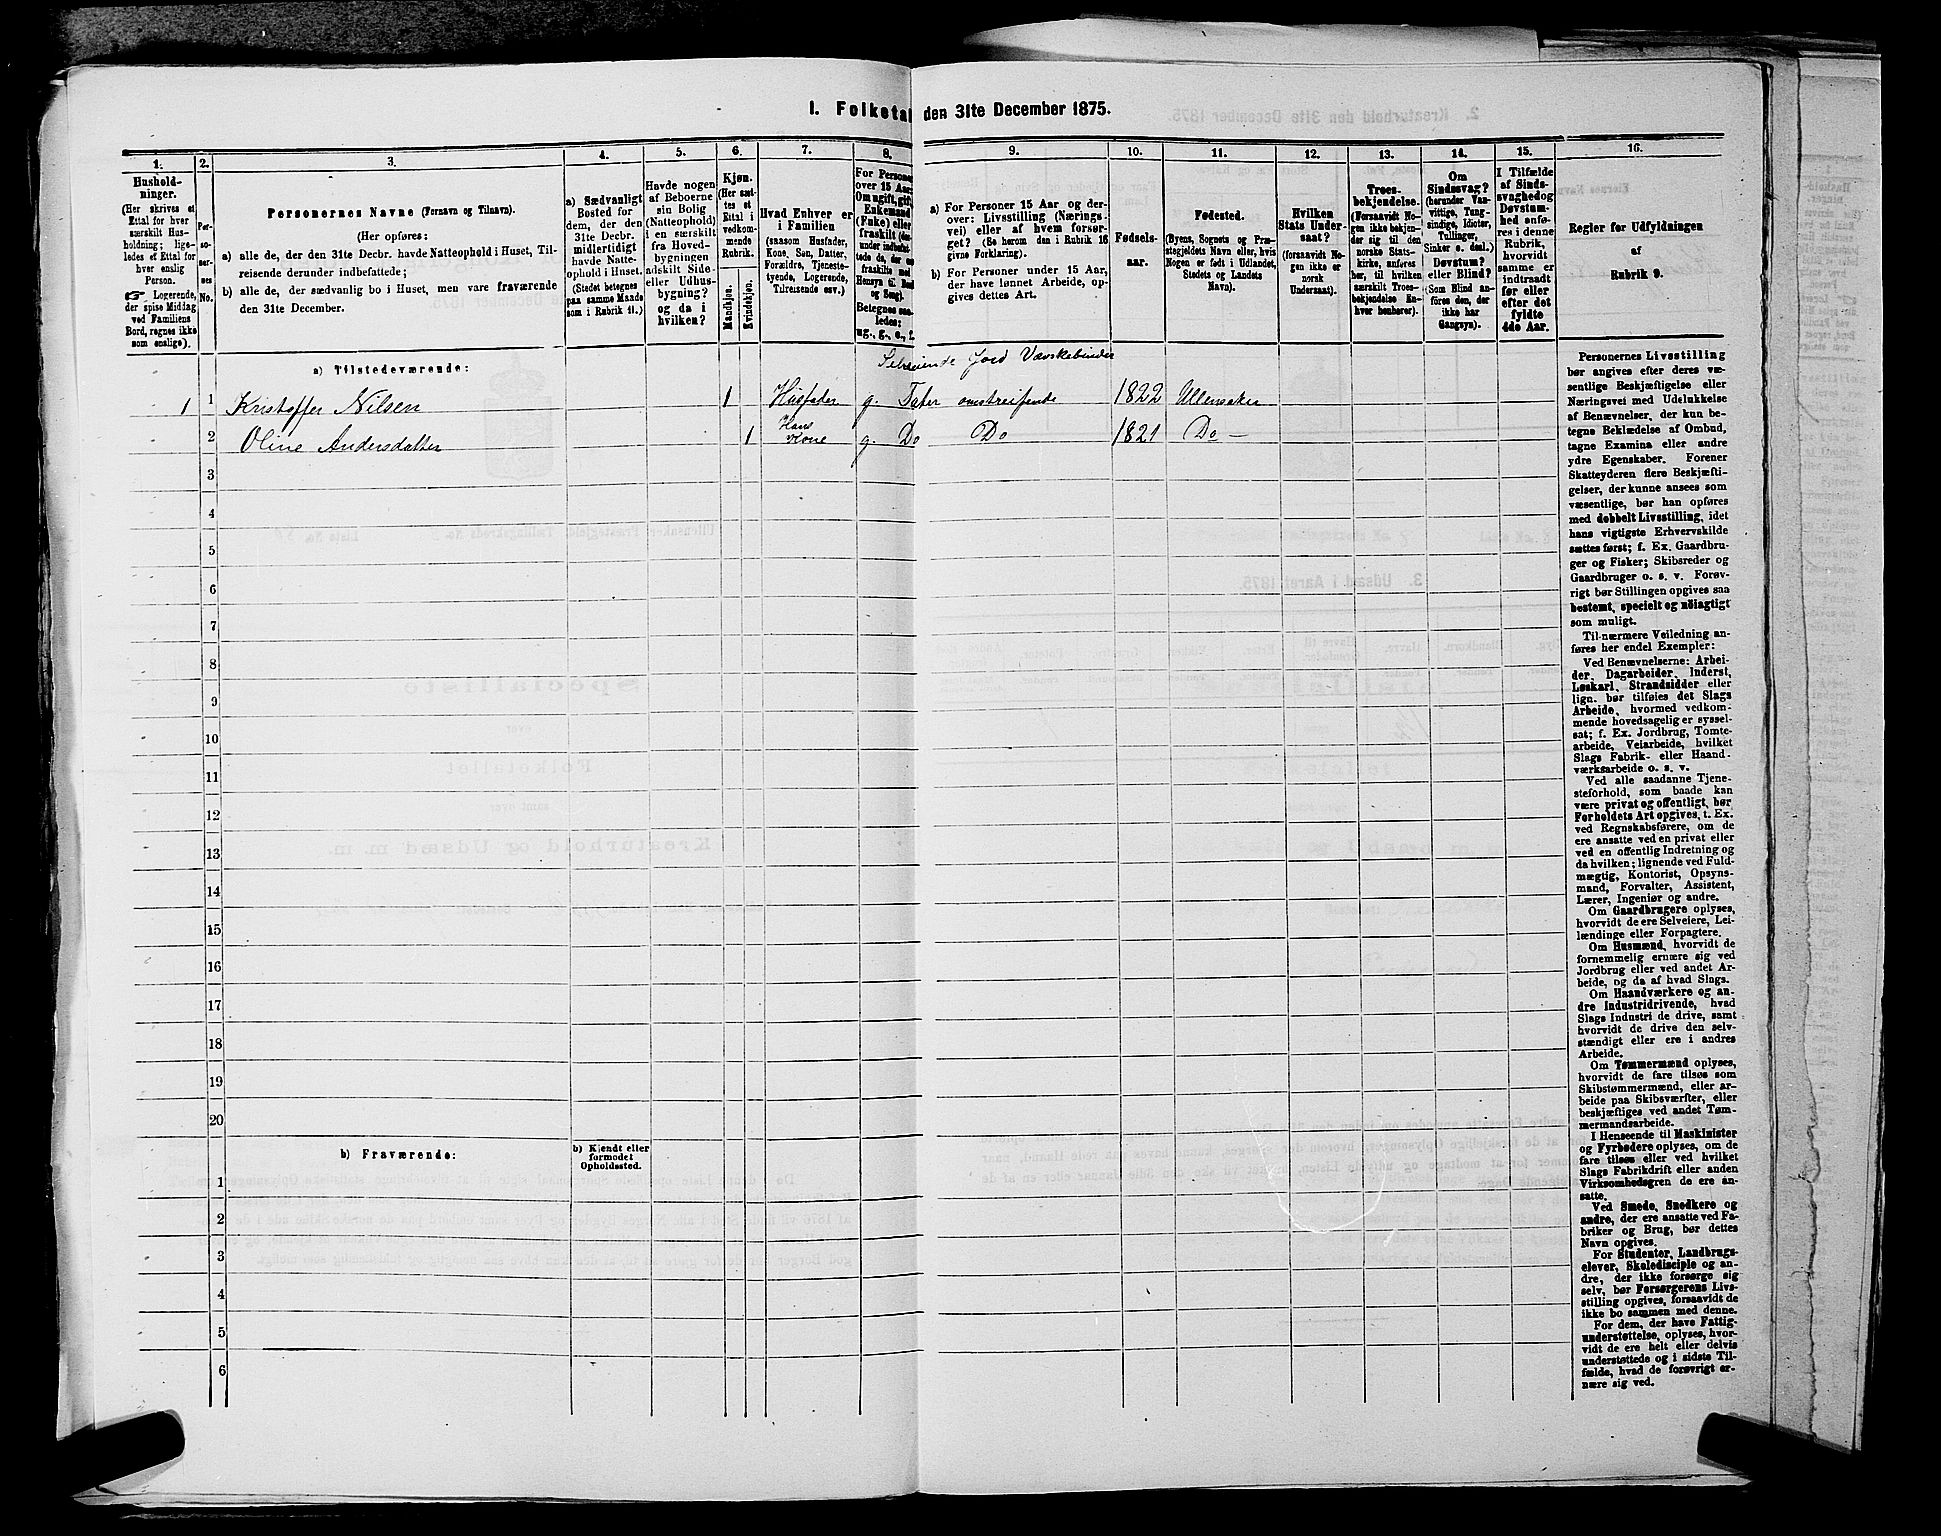 I. Folketal den 31te December 1875.
1.
2.
3.
4.
5.
6.
7.
8.
9.
10.
11.
12.
13.
14.
15.
16.
Hushold-
ninger.
(Her skrives et
Ettal for hver
særskilt Hus-
holdning; lige-
ledes et Ettal for
hver enslig
Person.
☞ Logerende,
der spise Middag
ved Familiens
Bord, regnes ikke
som enslige).
Per-
so-
ner-
nes
No.
Personernes Navne (Fornavn og Tilnavn).
(Her opføres:
a) alle de, der den 31te Decbr. havde Natteophold i Huset, Til-
reisende derunder indbefattede;
b) alle de, der sædvanlig bo i Huset, men vare fraværende
den 31te December.
a) Sædvanligt
Bosted for
dem, der den
31te Decbr.
midlertidigt
havde Natte-
ophold i Huset.
(Stedet betegnes
paa samme Maade
som i Rubrik 11.)
Havde nogen
af Beboerne
sin Bolig
(Natteophold)
i en særskilt
fra Hoved-
bygningen
adskilt Side-
eller Udhus-
bygning?
og da i
hvilken?
Kjøn.
(Her sæt-
tes et
Ettal i
vedkom-
mende
Rubrik.
Mandkjøn.
Kvindekjøn.
Hvad Enhver er
i Familien
(saasom Husfader,
Kone, Søn, Datter,
Forældre, Tjeneste-
tyende, Logerende,
Tilreisende osv.)
For Personer
over 15 Aar:
Om ugift, gift,
Enkemand
(Enke) eller
fraskilt
Betegnes saa-
ledes:
ug., g., e., f.
a) For Personer 15 Aar og der-
over: Livsstilling (Nærings-
vei) eller af hvem forsør-
get? (Se herom den i Rubrik 16
givne Forklaring).
b) For Personer under 15 Aar,
der have lønnet Arbeide, op-
gives dettes Art.
Fødsels-
aar.
Fødested.
(Byens, Sognets og Præ-
stegjeldets Navn eller, hvis
Nogen er født i Udlandet,
Stedets og Landets
Navn).
Hvilken
Stats Under-
saat?
(forsaavidt No-
gen ikke er
norsk
Undersaat).
Troes-
bekjendelse.
(Forsaavidt No-
gen ikke bekjen-
der sig til den
norske Stats-
kirke, anføres
her, til hvilken
særskilt Troes-
bekjendelse En-
hver henhører).
Om
Sindssvag?
(herunder Van-
vittige, Tung-
sindige, Idioter,
Tullinger,
Sinker o. desl.)
Døvstum?
eller Blind?
(Som Blind an-
føres den, der
ikke har
Gangsyn).
I Tilfælde
af Sinds-
svaghed og
Døvstum-
hed anfø-
res i denne
Rubrik,
hvorvidt
samme er
indtraadt
før eller
efter det
fyldte
4de Aar.
Regler for Udfyldningen
af
Rubrik 9.
a) Tilstedeværende:
Selveiende Jord Vævskebinder
1 1 Kristoffer Nilsen 1 Husfader g. Tater omstreifende 1822 Ullensaker
2 Oline Andersdatter 1 Hans Kone g. Do Do 1821 Do —
3
4
5
6
7
8
9
10
11
12
13
14
15
16
17
18
19
20
b) Fraværende:
b) Kjendt eller
formodet
Opholdssted.
1
2
3
4
5
6
Personernes Livsstilling
bør angives efter deres væ-
sentlige Beskjæftigelse eller
Næringsvei med Udelukkelse
af Benævnelser, der kun be-
tegne Beklædelse af Ombud,
tagne Examina eller andre
ydre Egenskaber. Forener
Skatteyderen flere Beskjæfti-
gelser, der kunne ansees som
væsentlige, bør han opføres
med dobbelt Livsstilling, idet
hans vigtigste Erhvervskilde
sættes først; f. Ex. Gaardbru-
ger og Fisker; Skibsreder og
Gaardbruger o. s. v. Forøv-
rigt bør Stillingen opgives saa
bestemt, specielt og nöiagtigt
som muligt.
Til nærmere Veiledning an-
føres her endel Exempler:
Ved Benævnelserne: Arbei-
der, Dagarbeider, Inderst,
Løskarl, Strandsidder eller
lign. bør tilføies det Slags
Arbeide, hvormed vedkom-
mende hovedsagelig er syssel-
sat; f. Ex. Jordbrug, Tomte-
arbeide, Veiarbeide, hvilket
Slags Fabrik- eller Haand-
værksarbeide o. s. v.
Ved alle saadanne Tjene-
steforhold, som baade kan
være privat og offentligt, bør
Forholdets Art opgives, t. Ex.
ved Regnskabsførere, om de
ere ansatte ved en privat eller
ved en offentlig Indretning og
da hvilken; lignende ved Fuld-
mægtig, Kontorist, Opsyns-
mand, Forvalter, Assistent,
Lærer, Ingeniør og andre.
Om Gaardbrugere oplyses,
hvorvidt de ere Selveiere, Lei-
lændinge eller Forpagtere.
Om Husmænd, hvorvidt de
fornemmelig ernære sig ved
Jordbrug eller ved andet Ar-
beide, og da af hvad Slags.
Om Haandværkere og an-
dre Industridrivende, hvad
Slags Industri de drive, samt
hvorvidt de drive den selv-
stændigt eller ere i andres
Arbeide.
Om Tømmermænd oplyses,
hvorvidt de fare tilsøs som
Skibstømmermænd, eller ar-
beide paa Skibsværfter, eller
beskjæftiges ved andet Tøm-
mermandsarbeide.
I Henseende til Maskinister
og Fyrbødere oplyses, om de
fare tilsøs eller ved hvilket
Slags Fabrikdrift eller anden
Virksomhedsgren de ere an-
satte.
Ved Smede, Snedkere og
andre, der ere ansatte ved Fa-
briker og Brug, bør dettes
Navn opgives.
For Studenter, Landbrugs-
elever, Skoledisciple og an-
dre, der ikke forsørge sig
selv, bør Forsørgerens Livs-
stilling opgives, forsaavidt de
ikke bo sammen med denne.
For dem, der have Fattig-
understøttelse, oplyses, hvor-
vidt de ere helt eller delvis
understøttede og i sidste Til-
fælde, hvad de forøvrigt er-
nære sig ved.